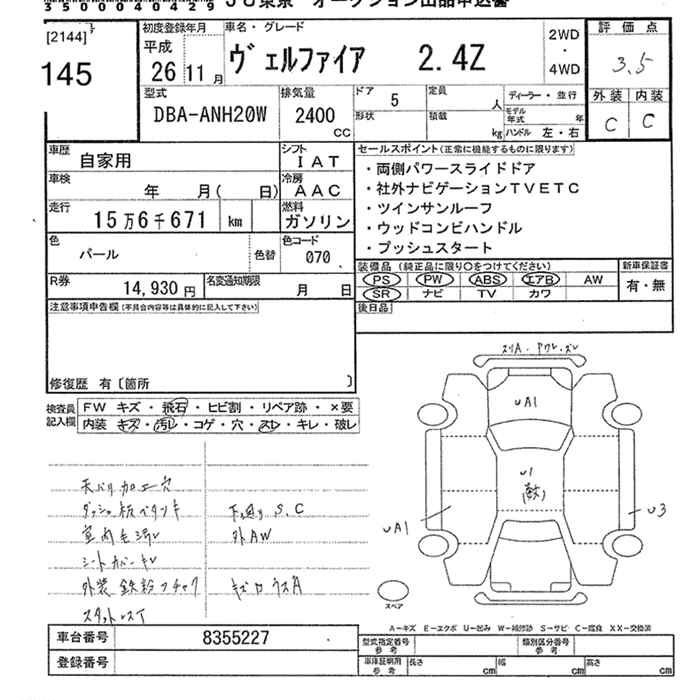 350000040429 JU東京 オークション出品申込書
[2144]
145
初度登録年月
平成
26 11月
車名・グレード
ヴェルファイア 2.4Z
2WD
・
4WD
評価点
3.5
外装 内装
C C
型式
DBA-ANH20W
排気量
2400
cc
ドア 5
定員 人
形状
積載 kg
ディーラー・並行
モデル年式 年
ハンドル 左・右
車歴
自家用
シフト
IAT
車検
年 月( 日)
冷房
AAC
走行
15万6千671 km
燃料
ガソリン
色
パール
色替
色コード
070
R券
14,930円
名変通知期限
月 日
セールスポイント(正常に機能するものに限ります)
・両側パワースライドドア
・社外ナビゲーションTVETC
・ツインサンルーフ
・ウッドコンビハンドル
・プッシュスタート
装備品(純正品に限り○をつけてください)
PS PW ABS エアB AW
SR ナビ TV カワ
新車保証書
有・無
後日品
注意事項申告欄(不具合内容等は具体的に記入して下さい)
修復歴 有〔箇所 〕
検査員
記入欄
FW キズ・飛石・ヒビ割・リペア跡・×要
内装 キズ・汚レ・コゲ・穴・スレ・キレ・破レ
天バリ加工穴
下廻り S.C
室内毛汚レ
外AW
シートカバーキレ
外装鉄粉フチャク
UA1
U1
UA1
U3
スペア
A-キズ E-エクボ U-凹み W-補修跡 S-サビ C-腐食 XX-交換済
車台番号 8355227
登録番号
型式指定番号
参考
類別区分番号
参考
車庫証明用
参考
長さ cm
幅 cm
高さ cm